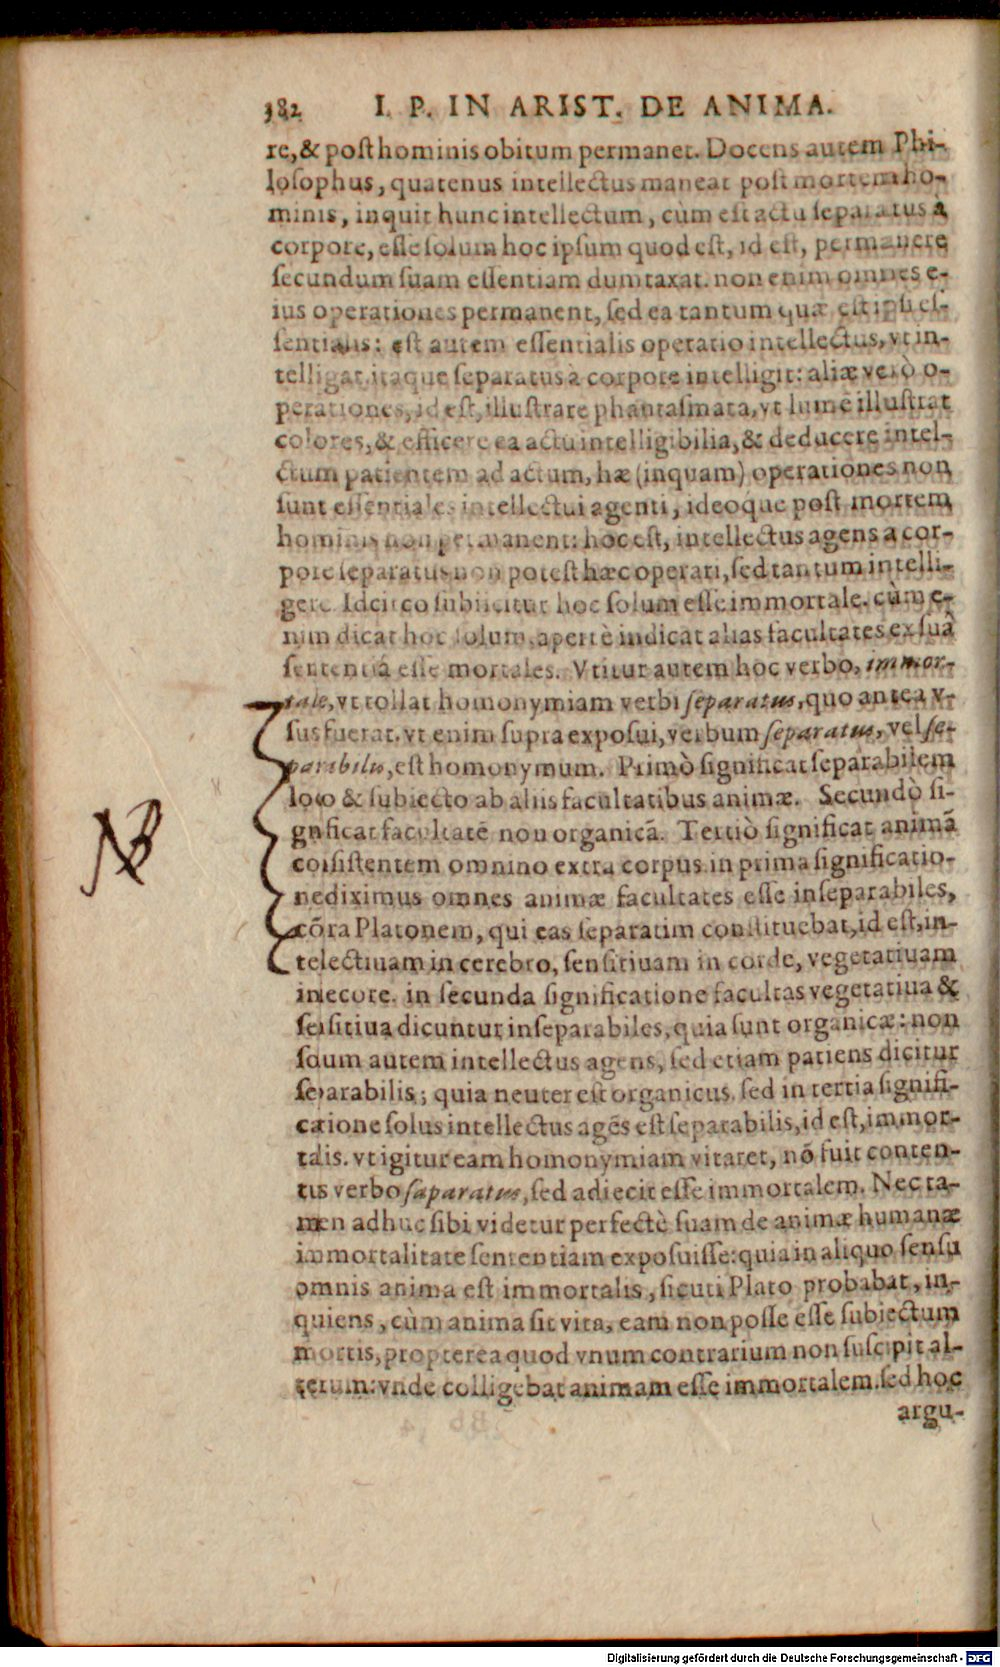 382 I. P. IN ARIST. DE ANIMA.
re, & post hominis obitum permanet. Docens autem Phi-
losophus, quatenus intellectus maneat post mortem ho-
minis, inquit hunc intellectum, cùm est actu separatus à
corpore, esse solum hoc ipsum quod est, id est, permanere
secundum suam essentiam dumtaxat. non enim omnes e-
ius operationes permanent, sed ea tantum quæ est ipsi es-
sentialis: est autem essentialis operatio intellectus, vt in-
telligat. itaque separatus à corpore intelligit: aliæ verò o-
perationes, id est, illustrare phantasmata, vt lumē illustrat
colores, & efficere ea actu intelligibilia, & deducere intel-
ctum patientem ad actum, hæ (inquam) operationes non
sunt essentiales intellectui agenti, ideoque post mortem
hominis non permanent: hoc est, intellectus agens a cor-
pore separatus non potest hæc operari, sed tantum intelli-
gere. Idcirco subiicitur hoc solum esse immortale. cùm e-
nim dicat hoc solum, apertè indicat alias facultates ex suâ
sententiâ esse mortales. Vtitur autem hoc verbo, immor-
tale, vt tollat homonymiam verbi separatus, quo antea v-
sus fuerat. vt enim supra exposui, verbum separatus, vel se-
parabilis, est homonymum. Primò significat separabilem
loco & subiecto ab aliis facultatibus animæ. Secundò si-
gnificat facultatē non organicã. Tertiò significat animã
consistentem omnino extra corpus. in prima significatio-
ne diximus omnes animæ facultates esse inseparabiles,
cõra Platonem, qui eas separatim constituebat, id est, in-
telectiuam in cerebro, sensitiuam in corde, vegetatiuam
in iecore. in secunda significatione facultas vegetatiua &
sensitiua dicuntur inseparabiles, quia sunt organicæ: non
solum autem intellectus agens, sed etiam patiens dicitur
separabilis; quia neuter est organicus. sed in tertia signifi-
catione solus intellectus agēs est separabilis, id est, immor-
talis. vt igitur eam homonymiam vitaret, nõ fuit conten-
tus verbo saparatus, sed adiecit esse immortalem. Nec ta-
men adhuc sibi videtur perfectè suam de animæ humanæ
immortalitate sententiam exposuisse: quia in aliquo sensu
omnis anima est immortalis, sicuti Plato probabat, in-
quiens, cùm anima sit vita, eam non posse esse subiectum
mortis, propterea quod vnum contrarium non suscipit al-
terum: vnde colligebat animam esse immortalem. sed hoc
argu-
NB
Digitalisierung gefördert durch die Deutsche Forschungsgemeinschaft - DFG